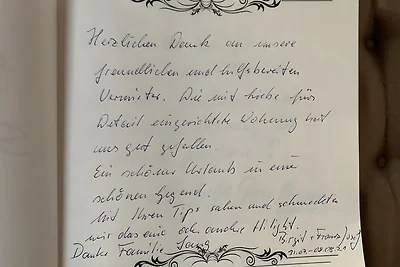 Herzlichen Dank an unsere
freundlichen und hilfsbereiten
Vermieter. Die mit Liebe fürs
Detail eingerichtete Wohnung hat
uns gut gefallen.
Ein schöner Urlaub in eine
schönen Gegend.
Mit Ihren Tips sahen und schmeckten
wir das eine od. andre Hilight.
Danke Familie
Birgit + Franz Josef